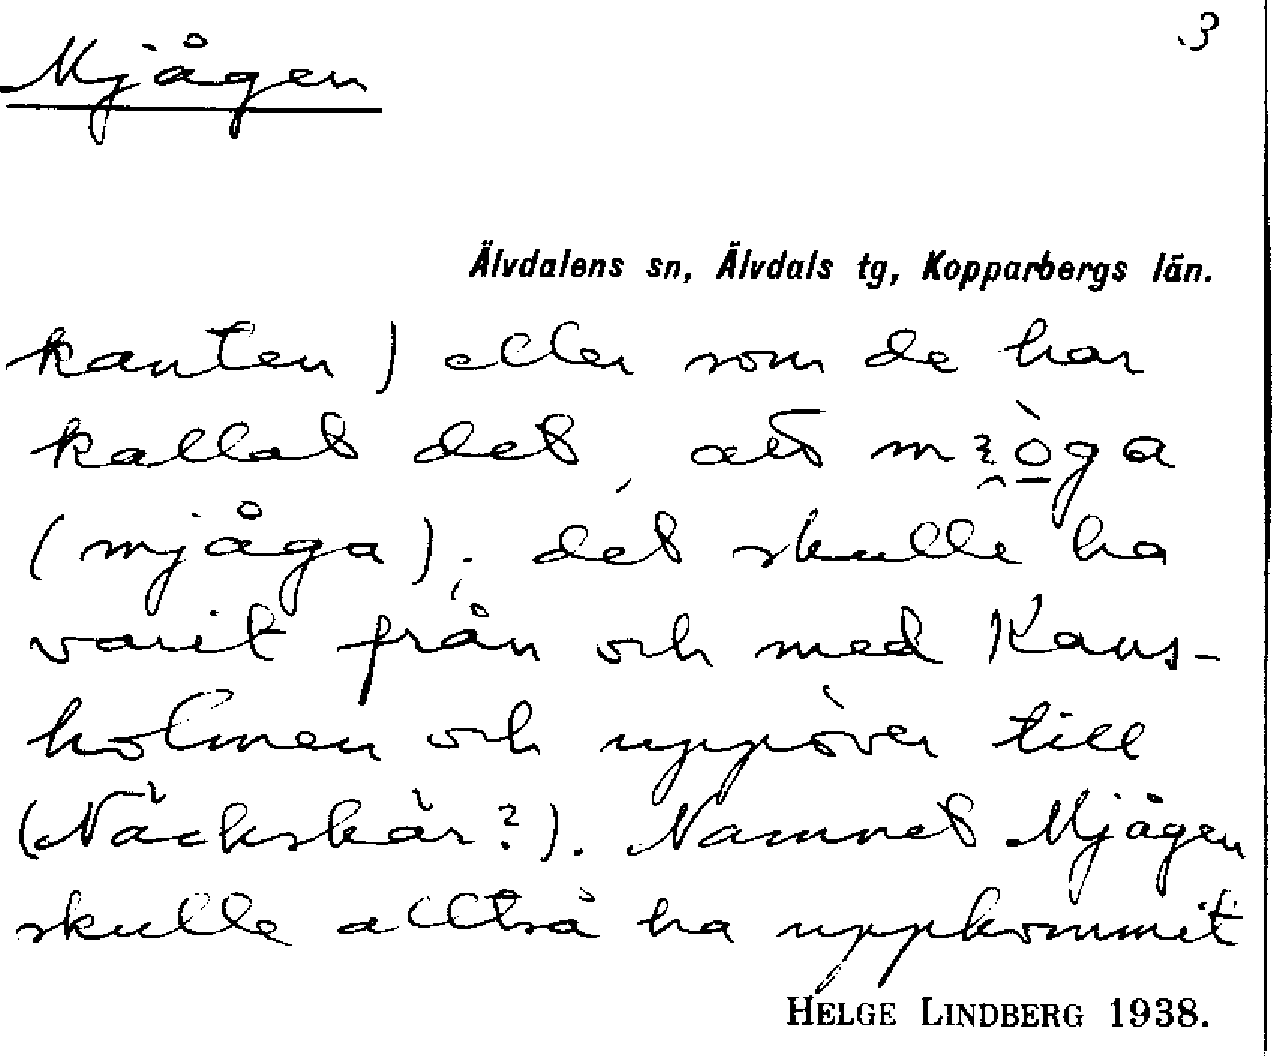 3
Mjågen
Älvdalens sn, Älvdals tg, Kopparbergs län.
kanten) eller som de har
kallat det, att
(mjåga); det skulle ha
varit från och med Kaus-
holmen och uppöver till
(Näckskär?). Namnet Mjågen
skulle alltså ha uppkommit
HELGE LINDBERG 1938.